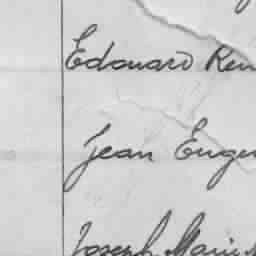 Edouard Ren
Jean Euge
Joseph Marie